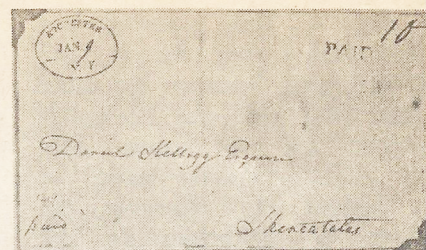 ROCHESTER
JAN 9
N.Y
PAID
10
Daniel Kellogg Esquire
paid
Skeneatetes